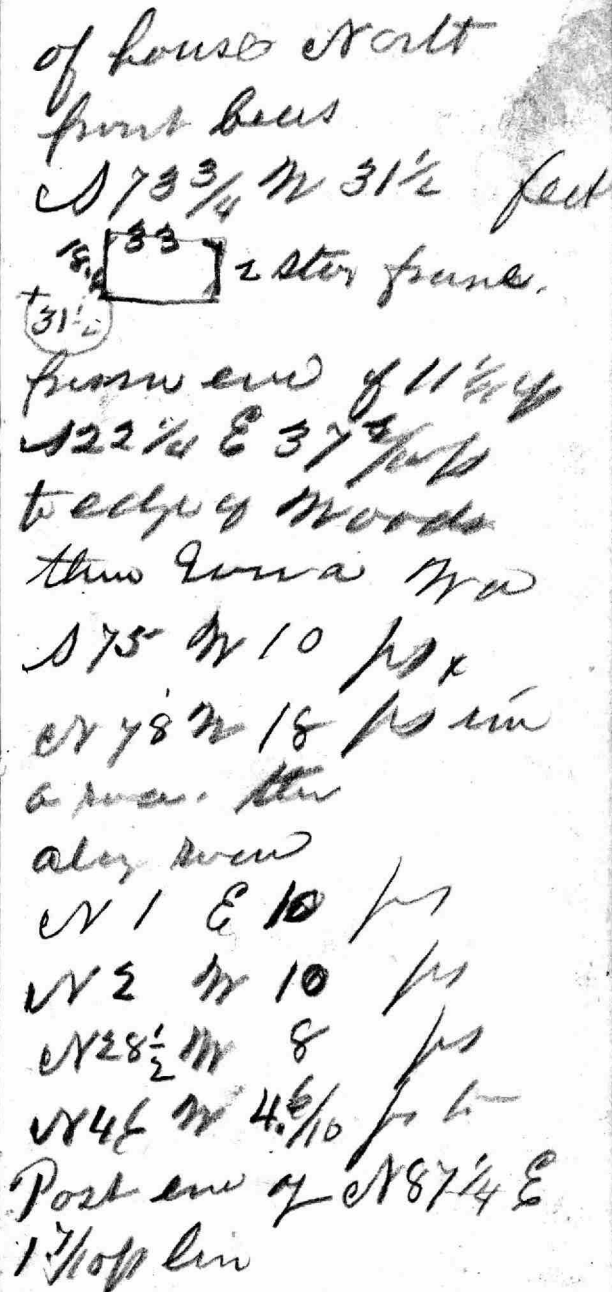 of house North
front bears
S 73 3/4 W 31 1/2 feet
33
18
2 story frame.
31 1/2
from end of 11 1/4 ps
S 22 1/4 E 37 /10 ps
to edge of Woods
then
S 75 W 10 ps x
N 78 W 18 ps
a run. then
along run
N 1 E 10 ps
N 2 W 10 ps
N 28 1/2 W 8 ps
N 46 W 4.6/10 ps to
Post end of N 87 1/4 E
17/10 ps line